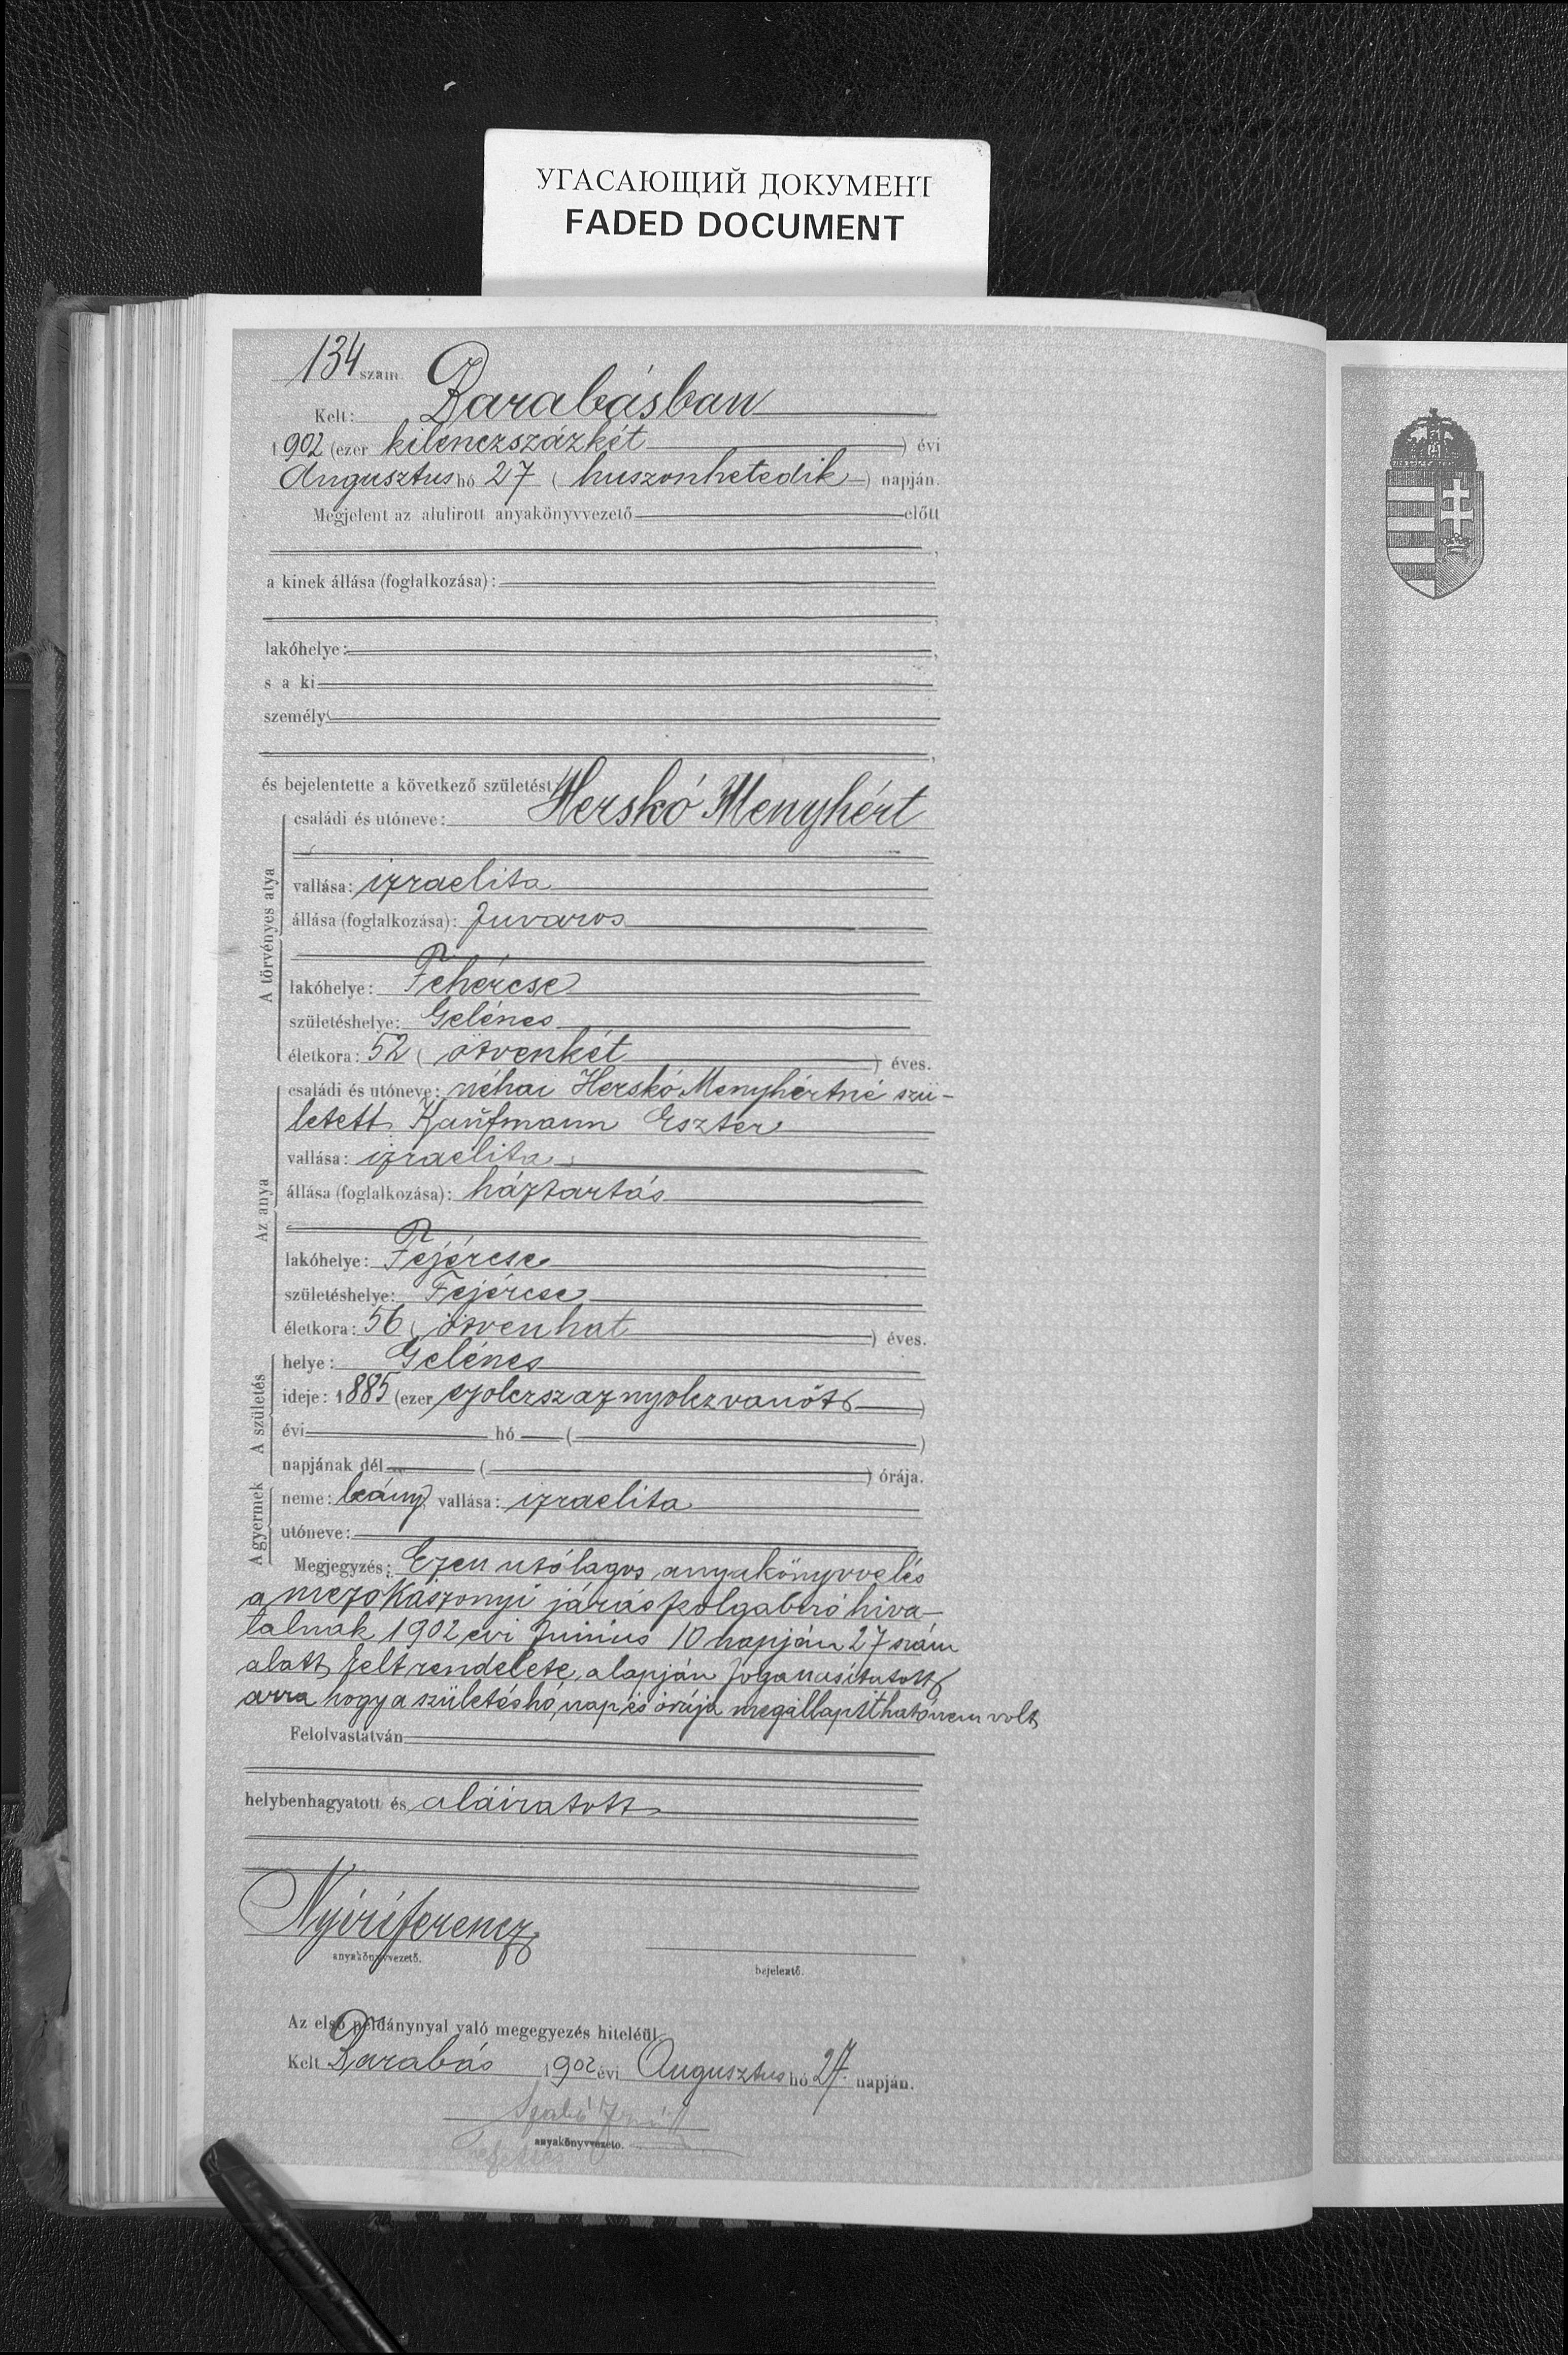 УГАСАЮЩИЙ ДОКУМЕНТ
FADED DOCUMENT
134 szám.
Kelt: Barabásban
1902 (ezer kilenczszázkét) évi
Augusztus hó 27 (huszonhetedik) napján.
Megjelent az alulirott anyakönyvvezető előtt
a kinek állása (foglalkozása):
lakóhelye:
s a ki
személy
és bejelentette a következő születést:
A törvényes atya
családi és utóneve: Herskó Menyhért
vallása: izraelita
állása (foglalkozása): fuvaros
lakóhelye: Fehércse
születéshelye: Gelénes
életkora: 52 (ötvenkét) éves.
Az anya
családi és utóneve: néhai Herskó Menyhértné szü-
letett Kaufmann Eszter
vallása: izraelita
állása (foglalkozása): háztartás
lakóhelye: Fejércse
születéshelye: Fejércse
életkora: 56 (ötvenhat) éves.
A születés
helye: Gelénes
ideje: 1885 (ezer nyolczszaznyolczvanöt)
évi hó ( )
napjának dél ( ) órája.
A gyermek
neme: leány, vallása: izraelita
utóneve:
Megjegyzés: Ezen utólagos anyakönyvvelés
a mezőkászonyi járás szolgabiró hiva-
talnak 1902 évi Junius 10 napján 27 szám
alatt kelt rendelete alapján foganasitatott
arra hogy a születés hó, nap és órája megállapitható nem volt
Felolvastatván
helybenhagyatott és aláiratott
Nyíri Ferencz
anyakönyvvezető.
bejelentő.
Az első példánynyal való megegyezés hiteléül.
Kelt Barabás 1902 évi Augusztus hó 27. napján.
anyakönyvvezető.